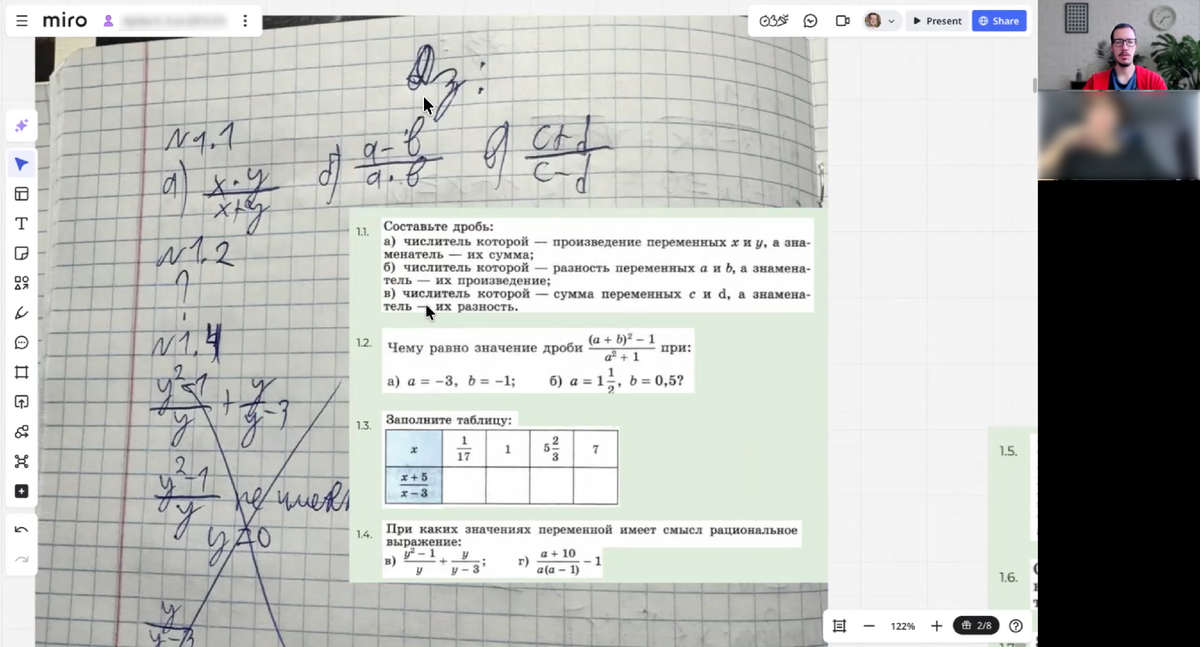 miro
Present
Share
Дз:
N1.1
а) x·y / x+y б) a-b / a·b в) c+d / c-d
N1.2
?
N1.4
y²-1 / y + y / y-3
y²-1 / y не имеет
y=0
y / y-3
1.1. Составьте дробь:
а) числитель которой — произведение переменных x и y, а зна-
менатель — их сумма;
б) числитель которой — разность переменных a и b, а знамена-
тель — их произведение;
в) числитель которой — сумма переменных c и d, а знамена-
тель — их разность.
1.2. Чему равно значение дроби (a + b)² − 1 / a² + 1 при:
а) a = −3, b = −1; б) a = 1 1/2, b = 0,5?
1.3. Заполните таблицу:
x 1/17 1 5 2/3 7
x + 5 / x − 3
1.4. При каких значениях переменной имеет смысл рациональное
выражение:
в) y² − 1 / y + y / y − 3; г) a + 10 / a(a − 1) − 1
1.5.
1.6.
122%
2/8